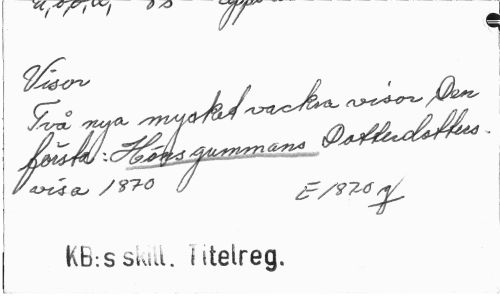 Visor
Två nya mycket vackra visor Den
första: Hönsgummans Dotterdotters.
visa 1870
E 1870 q
KB:s skill. Titelreg.